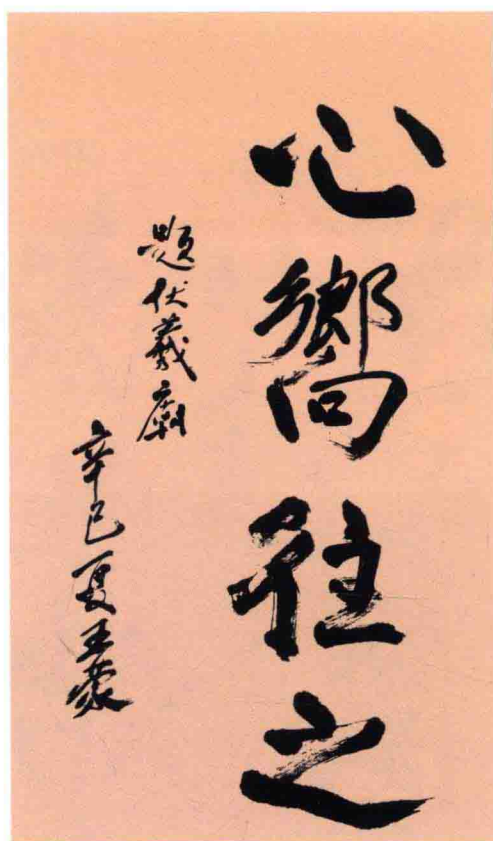 心嚮往之
題伏羲廟
辛巳夏王蒙